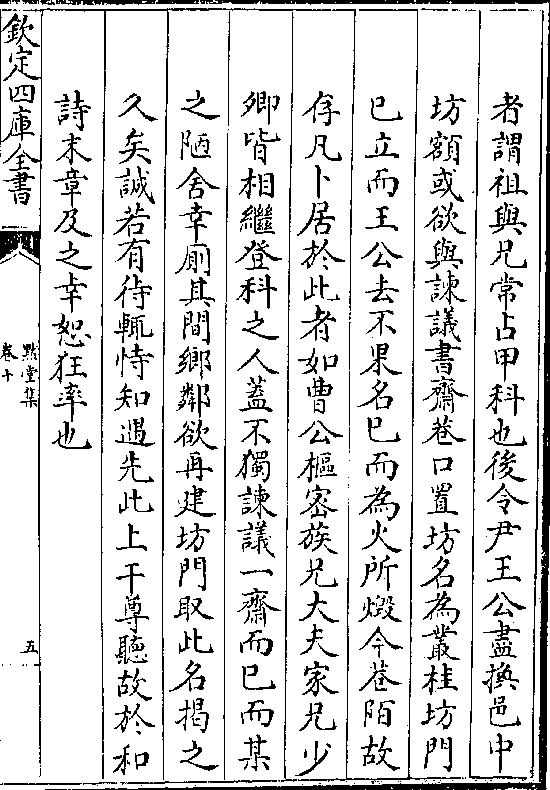 者謂祖與兄常占甲科也後令尹王公盡換邑中
坊額或欲與諫議書齋巷口置坊名為叢桂坊門
已立而王公去不果名已而為火所燬今巷陌故
存凡卜居於此者如曹公樞密族兄大夫家兄少
卿皆相繼登科之人蓋不獨諫議一齋而已而某
之陋舍幸廁其間鄉鄰欲再建坊門取此名揭之
久矣誠若有待輒恃知遇先此上干尊聽故於和
詩末章及之幸恕狂率也
欽定四庫全書
默堂集
卷十
五